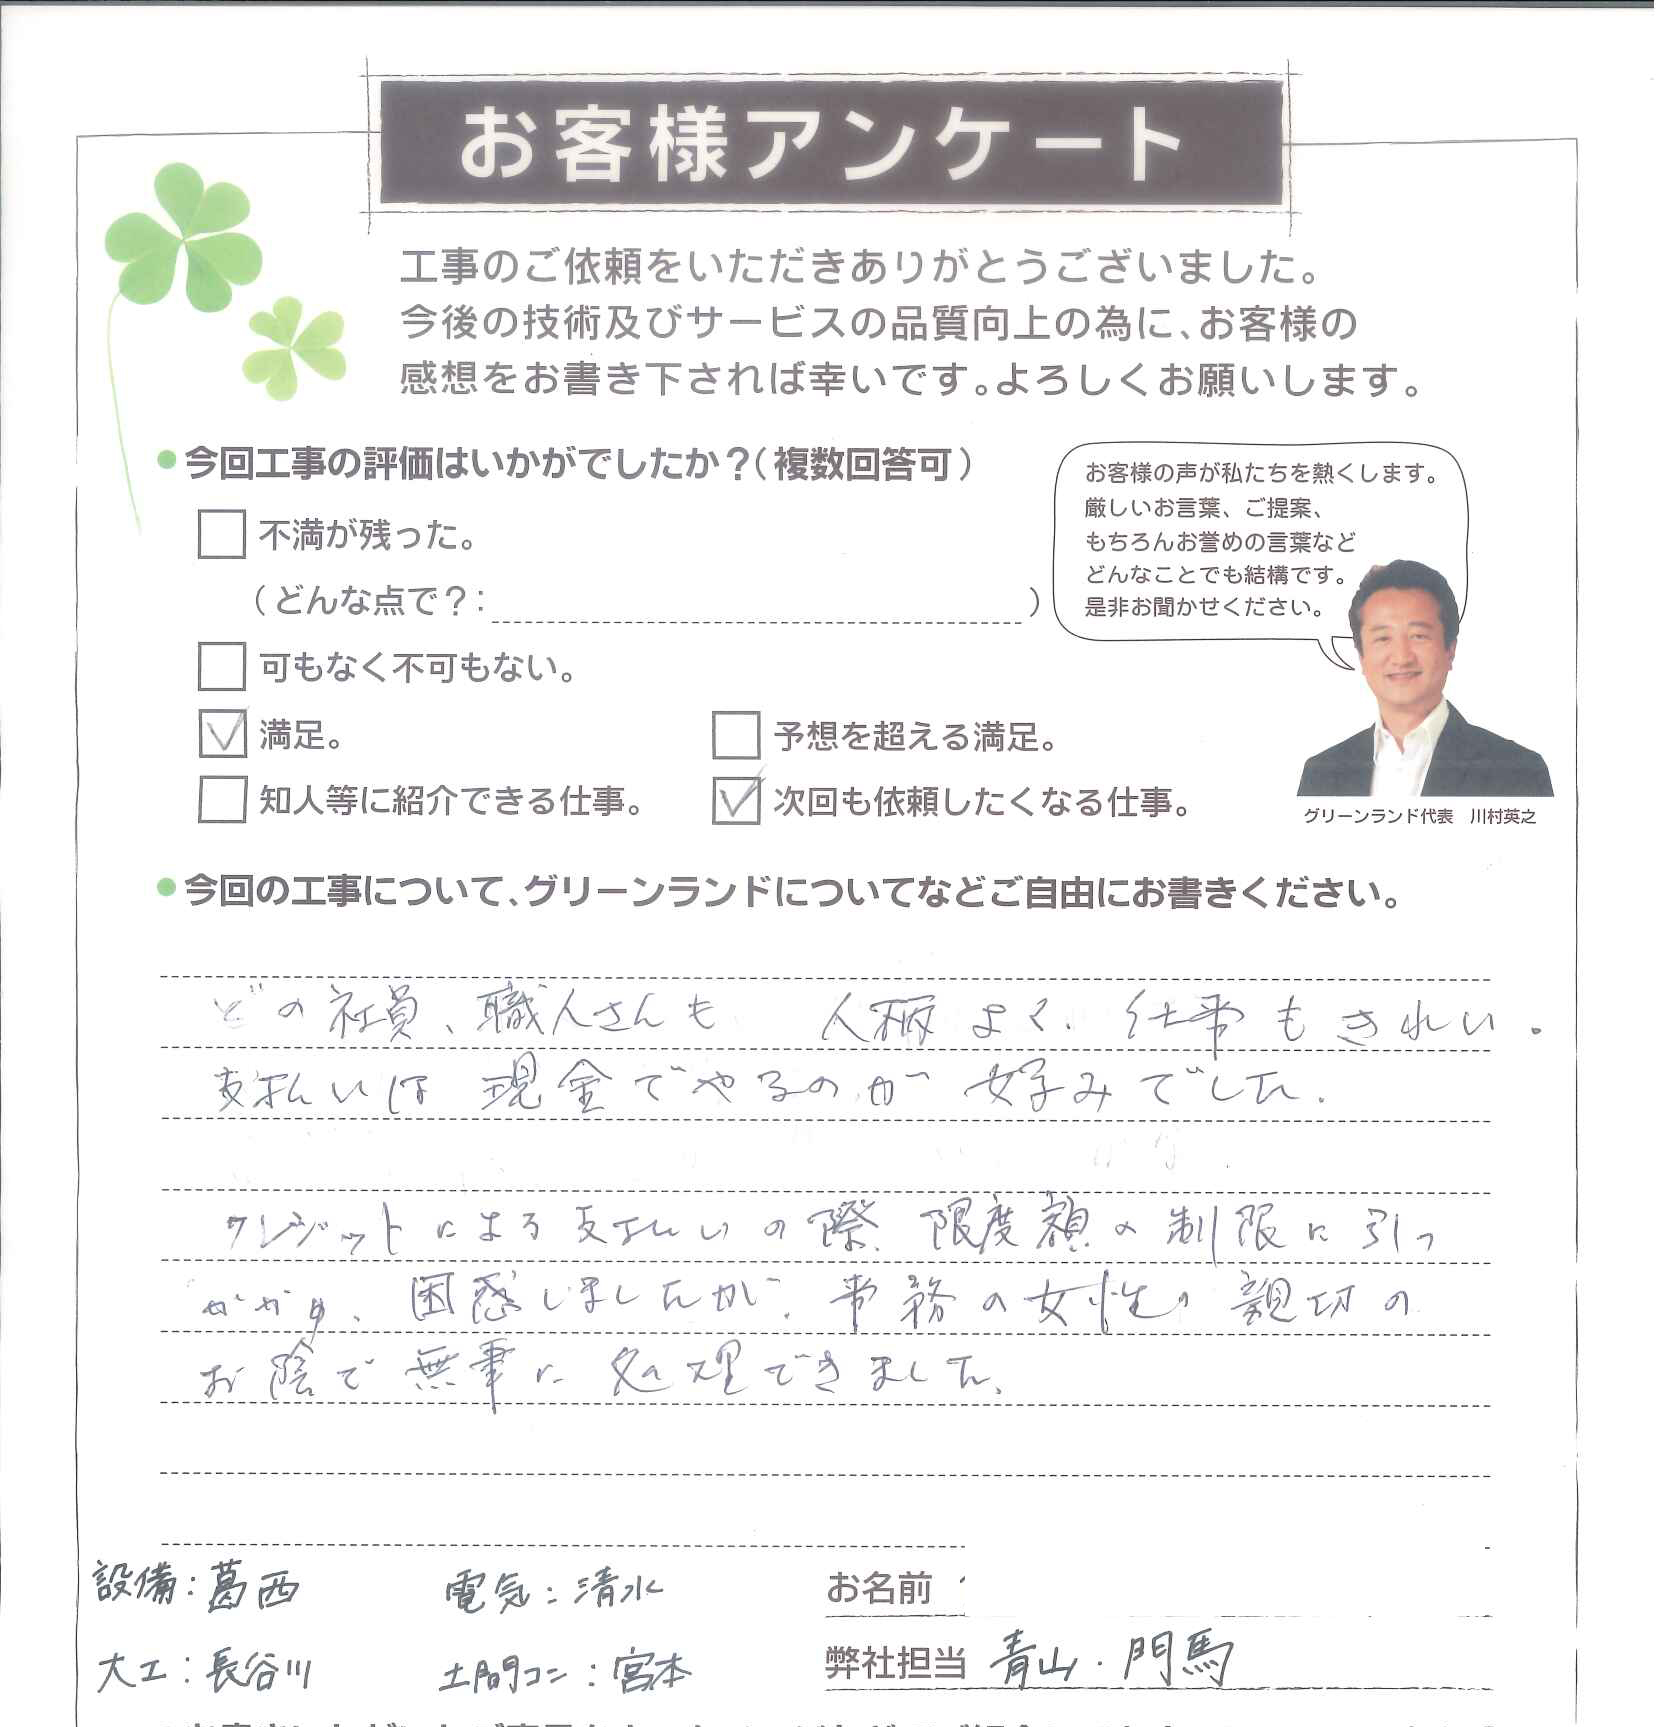 お客様アンケート
工事のご依頼をいただきありがとうございました。
今後の技術及びサービスの品質向上の為に、お客様の
感想をお書き下されば幸いです。よろしくお願いします。
今回工事の評価はいかがでしたか？（複数回答可）
不満が残った。
（どんな点で？： ）
可もなく不可もない。
満足。 予想を超える満足。
知人等に紹介できる仕事。 次回も依頼したくなる仕事。
お客様の声が私たちを熱くします。
厳しいお言葉、ご提案、
もちろんお誉めの言葉など
どんなことでも結構です。
是非お聞かせください。
グリーンランド代表 川村英之
今回の工事について、グリーンランドについてなどご自由にお書きください。
どの社員、職人さんも 人柄よく、仕事もきれい。
支払いは現金でやるのが好みでした。
クレジットによる支払いの際、限度額の制限に引っ
かかり、困惑しましたが、事務の女性の親切の
お陰で無事に処理できました。
設備：葛西 電気：清水 お名前
大工：長谷川 土間コン：宮本 弊社担当 青山・門馬